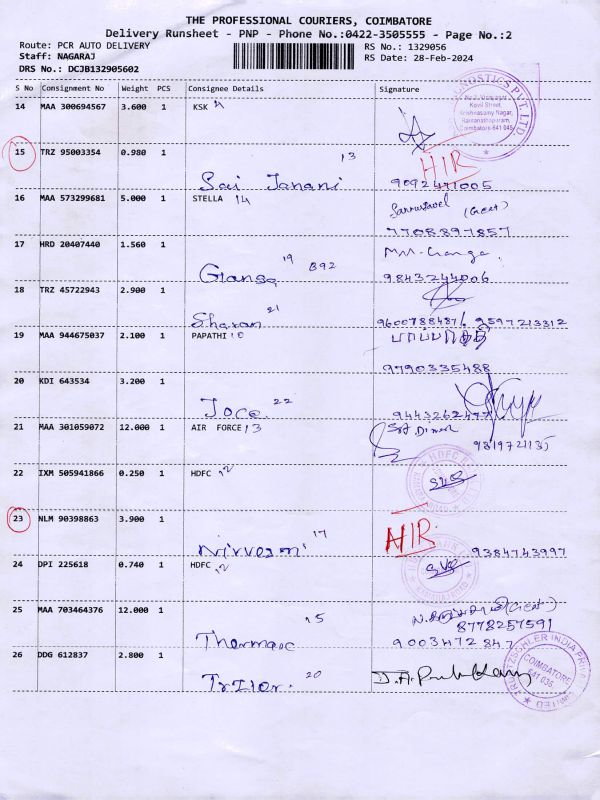 THE PROFESSIONAL COURIERS, COIMBATORE
Delivery Runsheet - PNP - Phone No.:0422-3505555 - Page No.:2
Route: PCR AUTO DELIVERY
RS No.: 1329056
Staff: NAGARAJ
RS Date: 28-Feb-2024
DRS No.: DCJB132905602
S No Consignment No Weight PCS Consignee Details Signature
14 MAA 300694567 3.600 1 KSK
Kovil Street,
Krishnasamy Nagar,
Ramanathapuram,
Coimbatore-641 045
15 TRZ 95003354 0.980 1 13
Sai Janani
9092471005
16 MAA 573299681 5.000 1 STELLA 14
7708897857
17 HRD 20407440 1.560 1 19 B92
Ganga
9843244006
18 TRZ 45722943 2.900 1 21
Sharan
9600788487 9597213312
19 MAA 944675037 2.100 1 PAPATHI
9790335488
20 KDI 643534 3.200 1 22
21 MAA 301059072 12.000 1 AIR FORCE 13
22 IXM 505941866 0.250 1 HDFC 12
HDFC
23 NLM 90398863 3.900 1 17
9384743997
24 DPI 225618 0.740 1 HDFC 12
25 MAA 703464376 12.000 1 15
8778257591
9003472847
26 DDG 612837 2.800 1 20
TRUETZSCHLER INDIA PRIVATE LIMITED
COIMBATORE
641 035